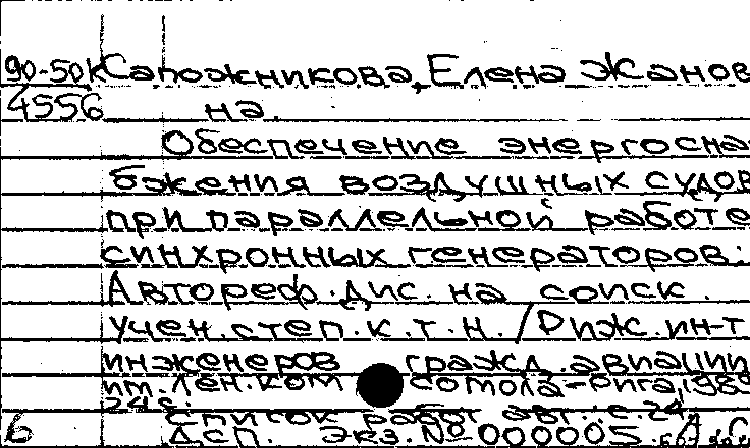 90-50к Сапожникова, Елена Жанов
4556 на.
Обеспечение энергосна
бжения воздушных судов
при параллельной работе
синхронных генераторов:
Автореф. дис. на соиск.
учен. степ. к. т. н. / Риж. ин-т
инженеров гражд. авиации
им. Лен. ком сомола - Рига, 1989
24 с.
Список работ авт.: с. 24.
6 ДСП. Экз. № 000005.